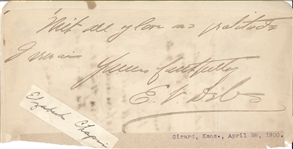 With all love and gratitude
I remain
Yours faithfully
E V Debs
Elizabeth Chapin
Girard, Kans., April 28, 1900.